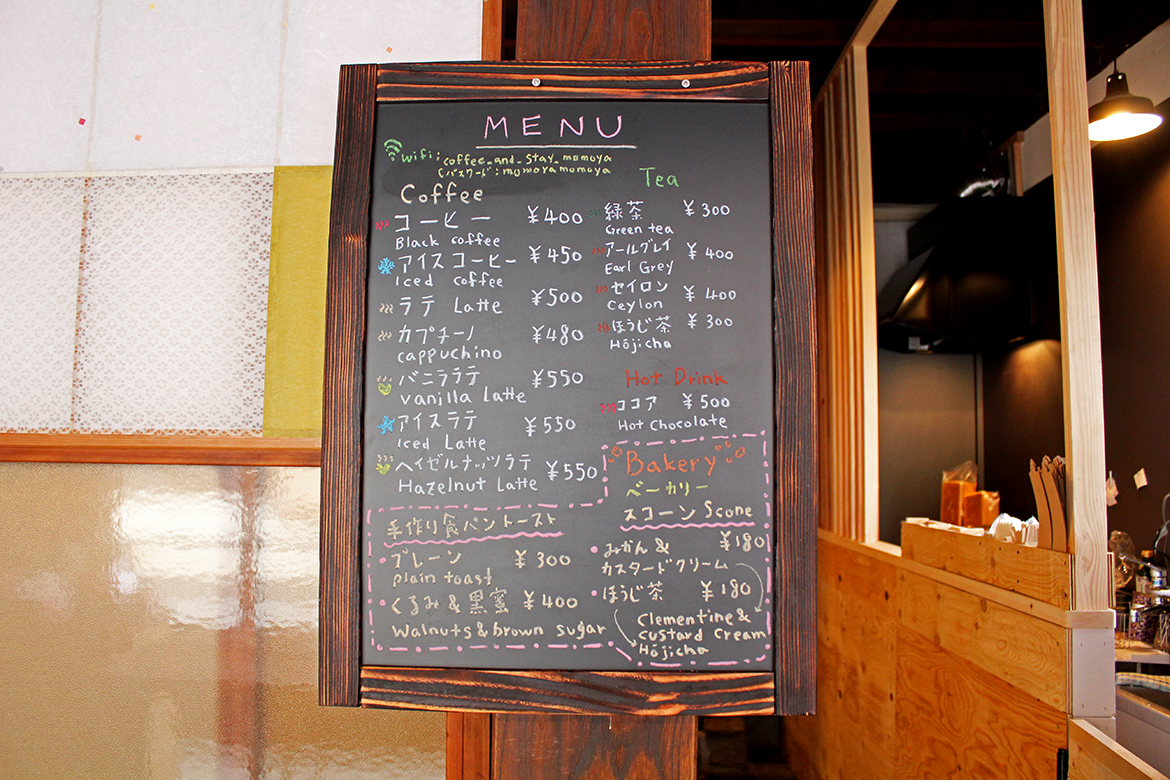 MENU
wifi: coffee_and_stay_momoya
(パスワード: momoyamomoya
Coffee
コーヒー ¥400
Black coffee
アイスコーヒー ¥450
Iced coffee
ラテ Latte ¥500
カプチーノ ¥480
cappuchino
バニララテ ¥550
vanilla Latte
アイスラテ ¥550
Iced Latte
ヘイゼルナッツラテ ¥550
Hazelnut Latte
Tea
緑茶 ¥300
Green tea
アールグレイ ¥400
Earl Grey
セイロン ¥400
Ceylon
ほうじ茶 ¥300
Hōjicha
Hot Drink
ココア ¥500
Hot Chocolate
Bakery
ベーカリー
手作り食パントースト
プレーン ¥300
plain toast
くるみ&黒蜜 ¥400
Walnuts & brown sugar
スコーン Scone
みかん& ¥180
カスタードクリーム
ほうじ茶 ¥180
Clementine &
custard cream
Hōjicha